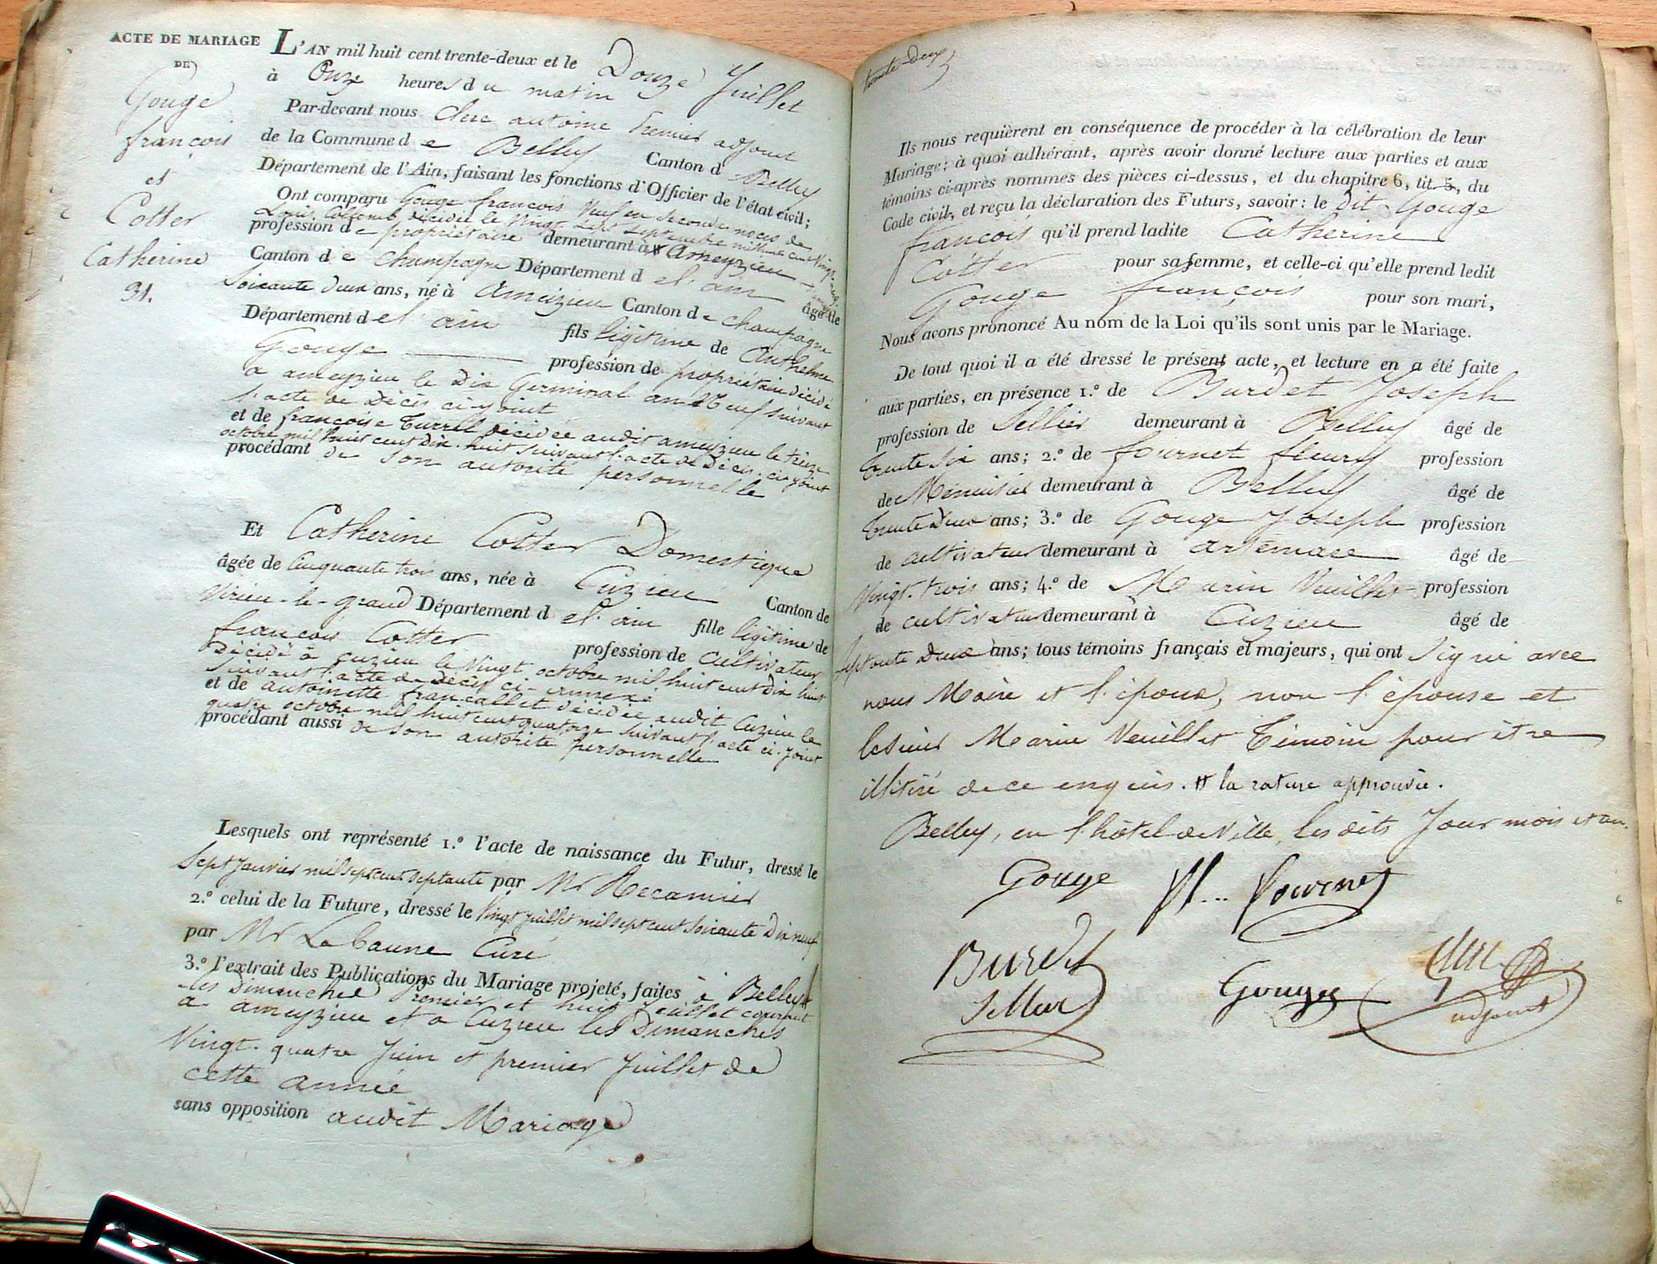 ACTE DE MARIAGE
DE
Gouge
françois
et
Cotter
Catherine
31.
L'AN mil huit cent trente-deux et le Douze Juillet
à Onze heures du matin
Par-devant nous Clerc antoine Premier adjoint
de la Commune de Belley Canton d Belley
Département de l'Ain, faisant les fonctions d'Officier de l'état civil;
Ont comparu Gouge françois Veuf en secondes noces de
Louise décédée le Vingt Septembre mil huit cent Vingt
profession de propriétaire demeurant à Ameyzieu
Canton de Champagne Département de l'ain âgé de
Soixante deux ans, né à Ameizieu Canton de Champagne
Département de l'ain fils légitime de Anthelme
Gouge profession de propriétaire décédé
a ameyzieu le Dix Germinal an Neuf suivant
l'acte de Décès ci-joint
et de françoise Turrel décédée audit ameyzieu le treize
octobre mil huit cent dix-huit suivant l'acte de Décès ci-joint
procédant de son autorité personnelle
Et Catherine Cotter Domestique
âgée de Cinquante trois ans, née à Cuzieu Canton de
Virieu-le-grand Département de l'ain fille légitime de
françois Cotter profession de Cultivateur
Décédé à Cuzieu le Vingt octobre mil huit cent dix huit
suivant l'acte de Décès ci-annexé
et de antoinette francallet décédée audit Cuzieu le
quatre octobre mil huit cent quatorze suivant l'acte ci-joint
procédant aussi de son autorité personnelle
Lesquels ont représenté 1.° l'acte de naissance du Futur, dressé le
Sept Janvier mil sept cent septante par Mr Recamier
2.° celui de la Future, dressé le Vingt Juillet mil sept cent soixante Dix neuf
par Mr LeBaune Curé
3.° l'extrait des Publications du Mariage projeté, faites à Belley
les Dimanches Premier et huit Juillet courant
a ameyzieu et a Cuzieu les Dimanches
Vingt-quatre Juin et premier Juillet de
cette année
sans opposition audit Mariage
trente-deux
Ils nous requièrent en conséquence de procéder à la célébration de leur
Mariage; à quoi adhérant, après avoir donné lecture aux parties et aux
témoins ci-après nommés des pièces ci-dessus, et du chapitre 6, tit. 5, du
Code civil, et reçu la déclaration des Futurs, savoir: le dit Gouge
françois qu'il prend ladite Catherine
Cotter pour sa femme, et celle-ci qu'elle prend ledit
Gouge françois pour son mari,
Nous avons prononcé Au nom de la Loi qu'ils sont unis par le Mariage.
De tout quoi il a été dressé le présent acte, et lecture en a été faite
aux parties, en présence 1.° de Burdet Joseph
profession de Sellier demeurant à Belley âgé de
trente six ans; 2.° de fournet fleury profession
de Menuisier demeurant à Belley âgé de
trente Deux ans; 3.° de Gouge Joseph profession
de cultivateur demeurant à artemare âgé de
Vingt-trois ans; 4.° de Marin Veuillet profession
de cultivateur demeurant à Cuzieu âgé de
septante Deux ans; tous témoins français et majeurs, qui ont signé avec
nous Maire et l'époux, non l'épouse et
le sieur Marin Veuillet Témoin pour être
illitéré de ce enquis. # la rature approuvée.
Belley, en l'hôtel de Ville, les dits Jour mois et an.
Gouge fl... fournet
Burdet
Sellier
Gouge
Clerc
adjoint